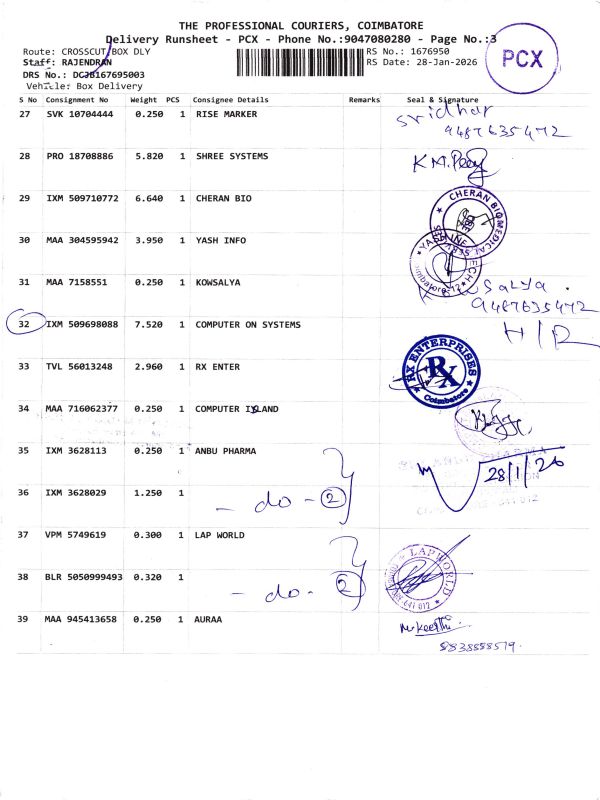 THE PROFESSIONAL COURIERS, COIMBATORE
Delivery Runsheet - PCX - Phone No.:9047080280 - Page No.:3
Route: CROSSCUT BOX DLY RS No.: 1676950
Staff: RAJENDRAN RS Date: 28-Jan-2026
PCX
DRS No.: DCJ8167695003
Vehicle: Box Delivery
S No Consignment No Weight PCS Consignee Details Remarks Seal & Signature
27 SVK 10704444 0.250 1 RISE MARKER Sridhar
9487635472
28 PRO 18708886 5.820 1 SHREE SYSTEMS
29 IXM 509710772 6.640 1 CHERAN BIO
CHERAN BIOMEDICAL
30 MAA 304595942 3.950 1 YASH INFO
31 MAA 7158551 0.250 1 KOWSALYA
9487635472
32 IXM 509698088 7.520 1 COMPUTER ON SYSTEMS
33 TVL 56013248 2.960 1 RX ENTER
RX ENTERPRISES
RX
Coimbatore
34 MAA 716062377 0.250 1 COMPUTER ISLAND
35 IXM 3628113 0.250 1 ANBU PHARMA
28/1/26
36 IXM 3628029 1.250 1
- do - 2
37 VPM 5749619 0.300 1 LAP WORLD
LAP WORLD
38 BLR 5050999493 0.320 1
- do - 2
39 MAA 945413658 0.250 1 AURAA M.Keerthi
8838888579